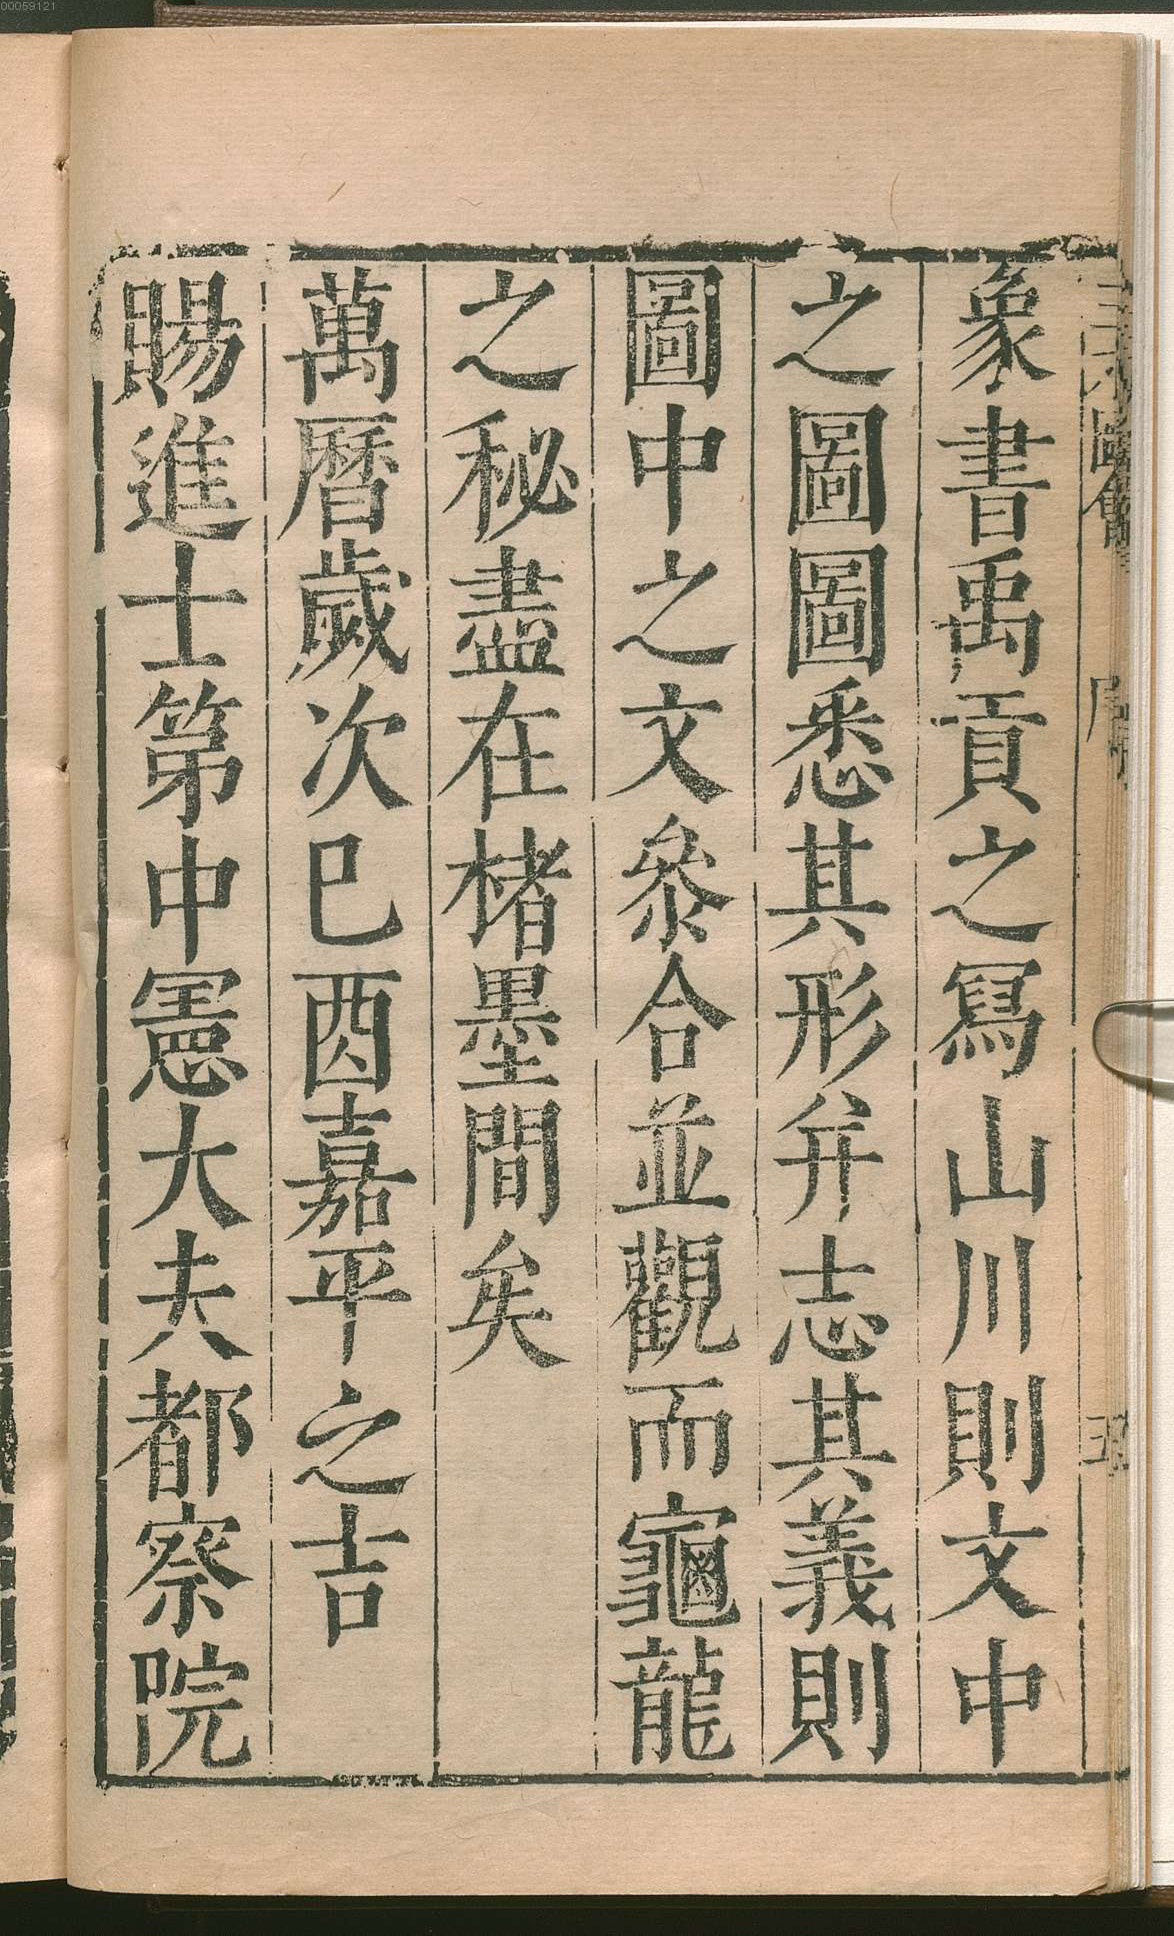 00059121
象書禹貢之寫山川則文中
之圖圖悉其形并志其義則
圖中之文叅合並觀而龜龍
之秘盡在楮墨間矣
萬曆歲次巳酉嘉平之吉
賜進士第中憲大夫都察院